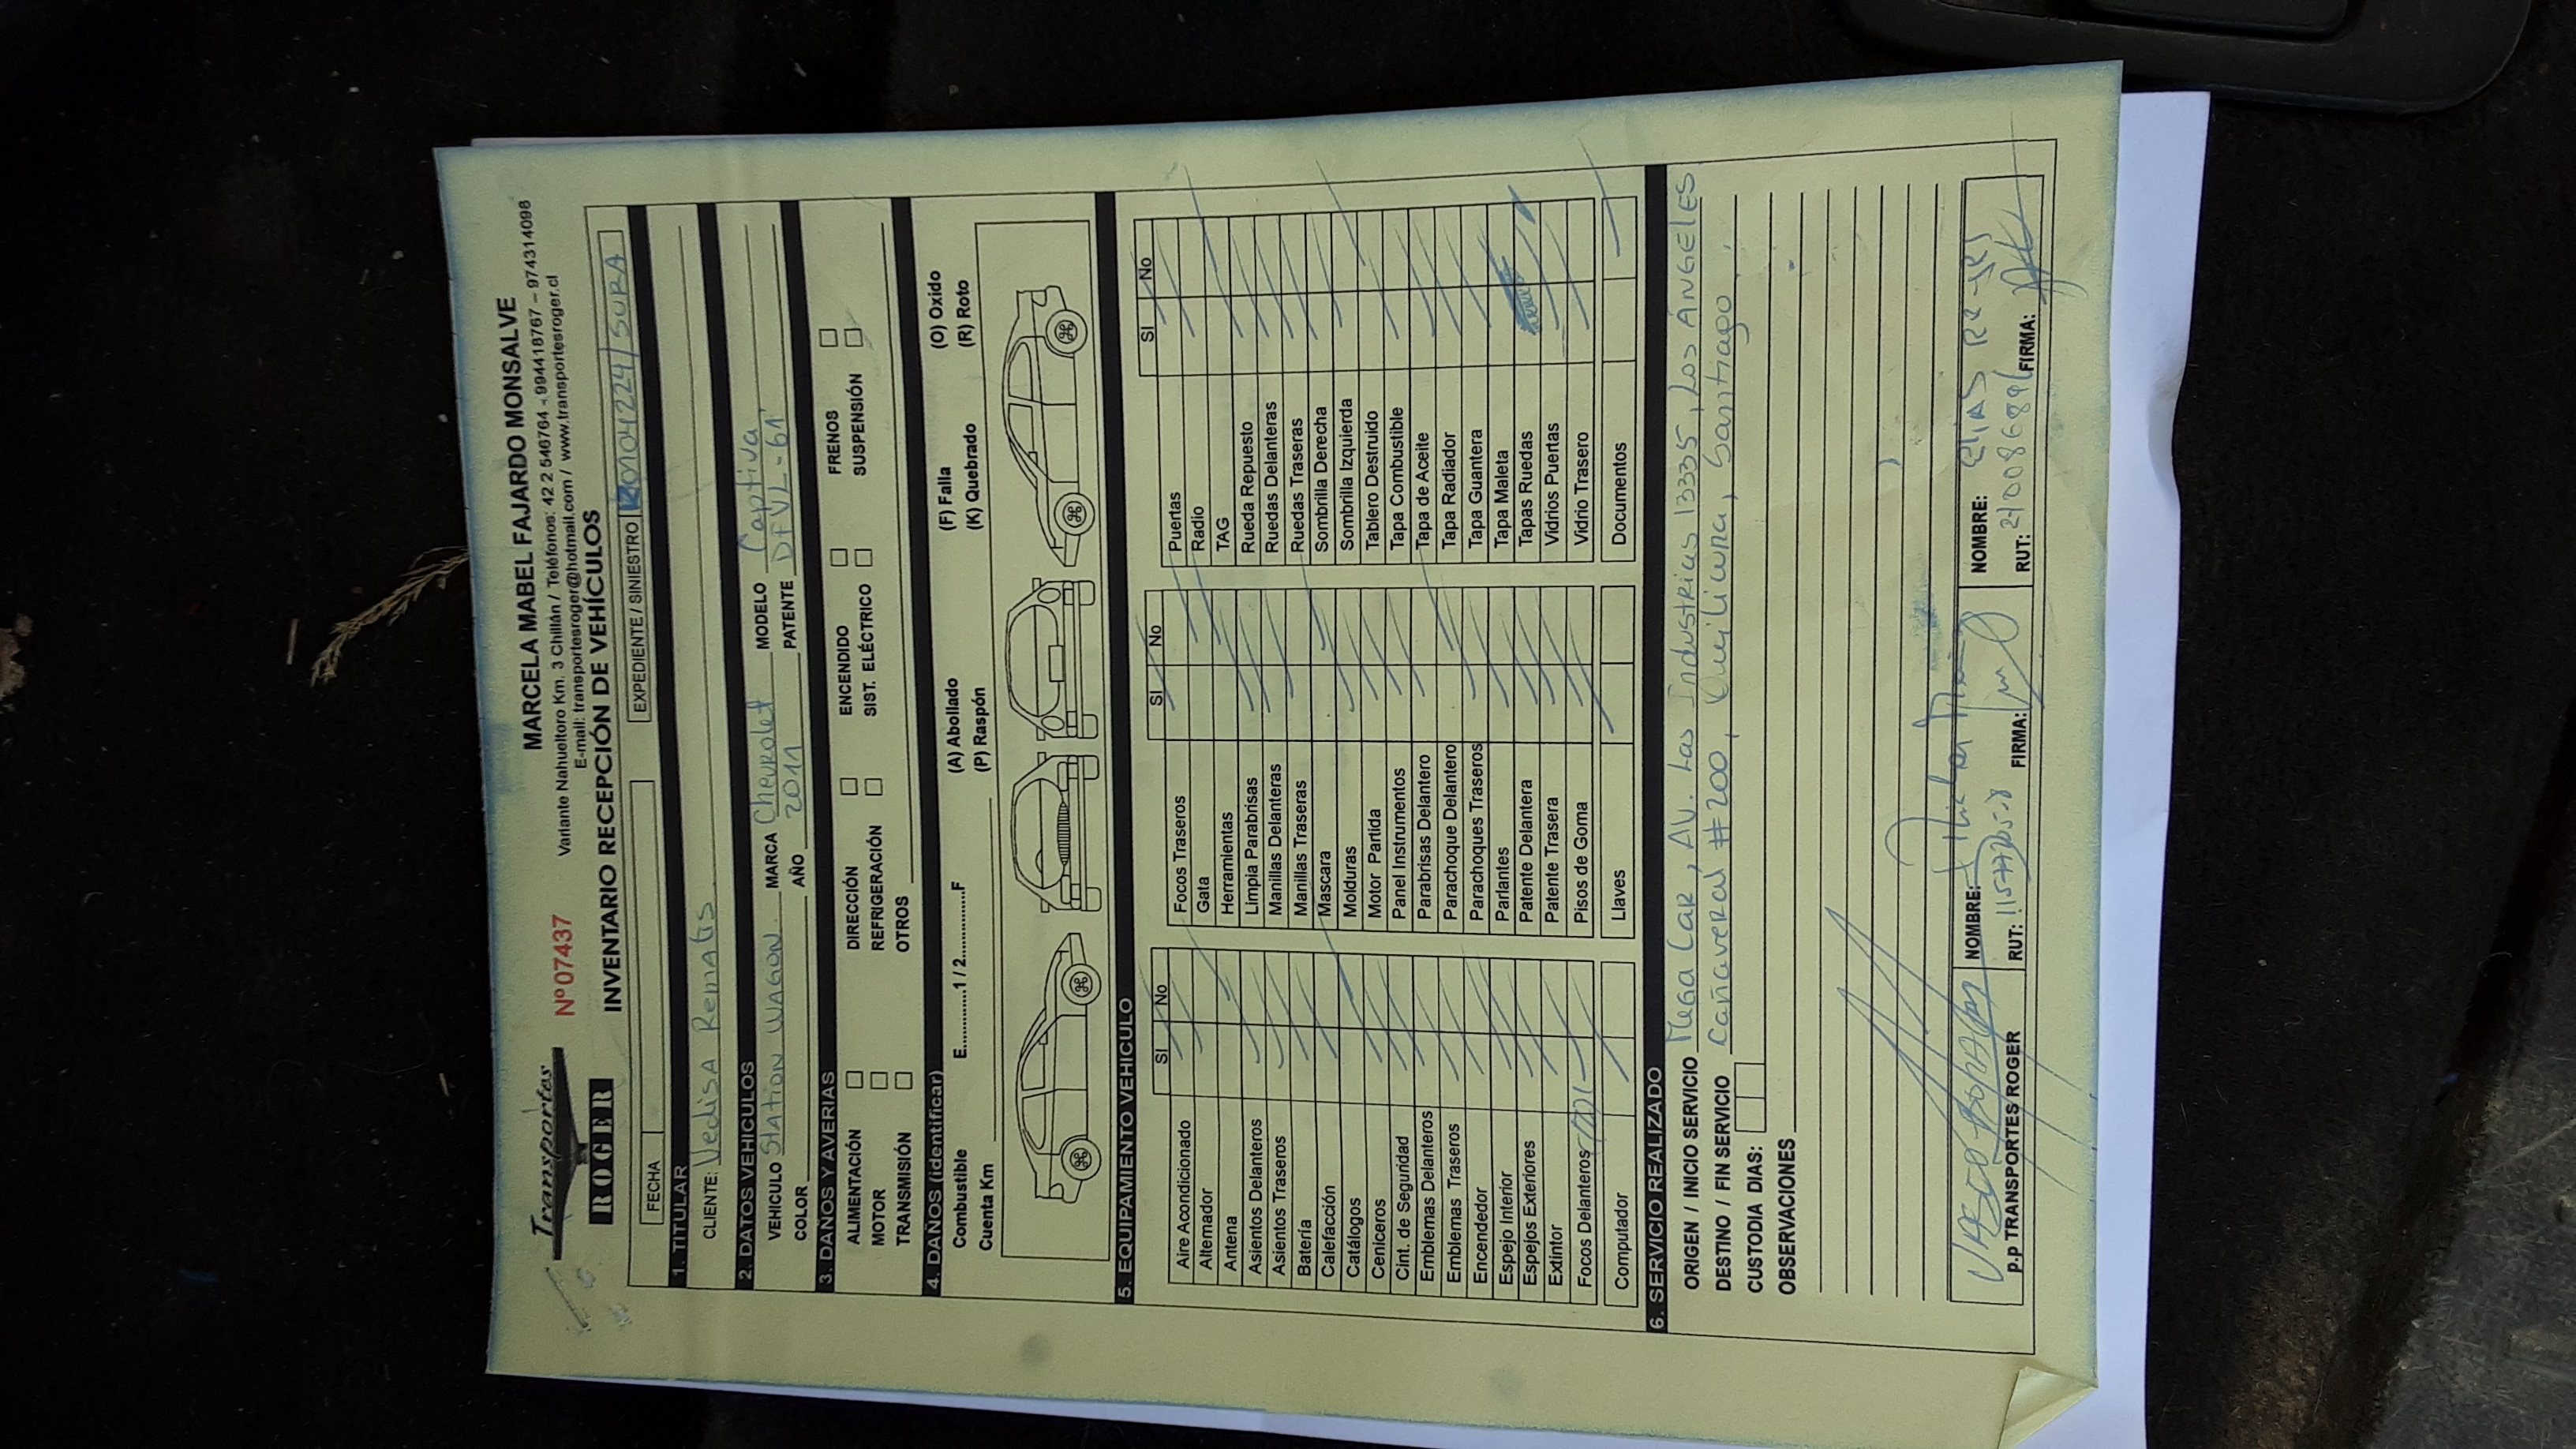 Transportes
ROGER
Nº 07437
MARCELA MABEL FAJARDO MONSALVE
Variante Nahueltoro Km. 3 Chillán / Teléfonos: 42 2 546764 - 994418767 – 974314098
E-mail: transportesroger@hotmail.com / www.transportesroger.cl
INVENTARIO RECEPCIÓN DE VEHÍCULOS
FECHA
EXPEDIENTE / SINIESTRO 0104224/SURA
1. TITULAR
CLIENTE: Vedisa Remates
2. DATOS VEHICULOS
VEHICULO Station WAGON MARCA Chevrolet MODELO Captiva
COLOR AÑO 2011 PATENTE DFVL-61
3. DAÑOS Y AVERIAS
ALIMENTACIÓN DIRECCIÓN ENCENDIDO FRENOS
MOTOR REFRIGERACIÓN SIST. ELÉCTRICO SUSPENSIÓN
TRANSMISIÓN OTROS
4. DAÑOS (identificar)
Combustible E.............1 / 2...............F (A) Abollado (F) Falla (O) Oxido
Cuenta Km (P) Raspón (K) Quebrado (R) Roto
5. EQUIPAMIENTO VEHICULO
SI No SI No SI No
Aire Acondicionado Focos Traseros Puertas
Alternador Gata Radio
Antena Herramientas TAG
Asientos Delanteros Limpia Parabrisas Rueda Repuesto
Asientos Traseros Manillas Delanteras Ruedas Delanteras
Batería Manillas Traseras Ruedas Traseras
Calefacción Mascara Sombrilla Derecha
Catálogos Molduras Sombrilla Izquierda
Ceniceros Motor Partida Tablero Destruido
Cint. de Seguridad Panel Instrumentos Tapa Combustible
Emblemas Delanteros Parabrisas Delantero Tapa de Aceite
Emblemas Traseros Parachoque Delantero Tapa Radiador
Encendedor Parachoques Traseros Tapa Guantera
Espejo Interior Parlantes Tapa Maleta
Espejos Exteriores Patente Delantera Tapas Ruedas
Extintor Patente Trasera Vidrios Puertas
Focos Delanteros Pisos de Goma Vidrio Trasero
Computador Llaves Documentos
6. SERVICIO REALIZADO
ORIGEN / INICIO SERVICIO Mega Car, AV. Las Industrias 13335, Los ÁNGELES
DESTINO / FIN SERVICIO Cañaveral #200, Quilicura, Santiago
CUSTODIA DIAS:
OBSERVACIONES
p.p TRANSPORTES ROGER
NOMBRE:
RUT:
FIRMA:
NOMBRE: ELIAS
RUT:
FIRMA: